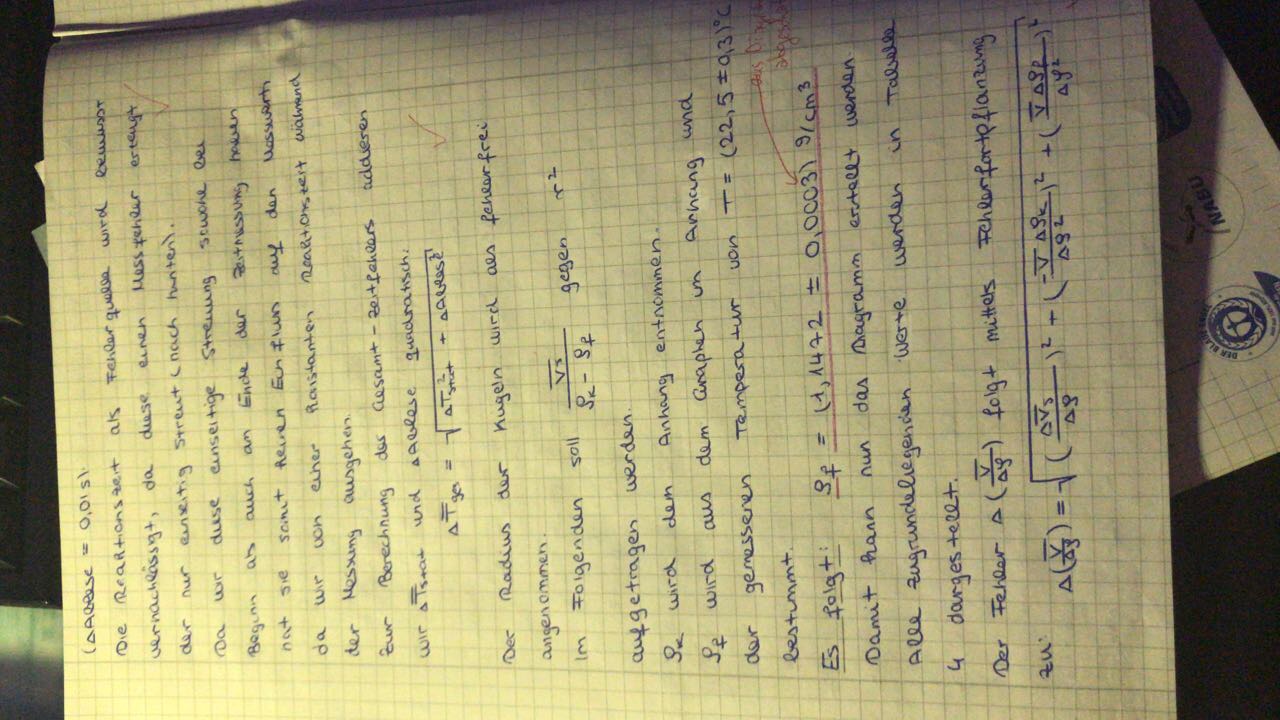 (ΔAblese = 0,01s).
Die Reaktionszeit als Fehlerquelle wird bewusst
vernachlässigt, da diese einen Messfehler erzeugt
der nur einseitig streut (nach hinten).
Da wir diese einseitige Streuung sowohl bei
Beginn als auch am Ende der Zeitmessung haben
hat sie somit keinen Einfluss auf den Messwert,
da wir von einer konstanten Reaktionszeit während
der Messung ausgehen.
Zur Berechnung des Gesamt-Zeitfehlers addieren
wir ΔT̅stat und ΔAblese quadratisch.
ΔT̅ges = √(ΔT̅stat² + ΔAblese²)
Der Radius der Kugeln wird als fehlerfrei
angenommen.
Im Folgenden soll v̅s/(ρk - ρf) gegen r²
aufgetragen werden.
ρk wird dem Anhang entnommen.
ρf wird aus dem Graphen im Anhang und
der gemessenen Temperatur von T = (22,5 ± 0,3)°C
bestimmt.
aus
Es folgt: ρf = (1,1472 ± 0,0003) g/cm³
Damit kann nun das Diagramm erstellt werden.
Alle zugrundeliegenden Werte werden in Tabelle
4 dargestellt.
Der Fehler Δ(v̅/Δρ) folgt mittels Fehlerfortpflanzung
zu: Δ(v̅/Δρ) = √((Δv̅s/Δρ)² + (-v̅ Δρk/Δρ²)² + (v̅ Δρf/Δρ²)²)
DER BLAUE ENGEL
NABU